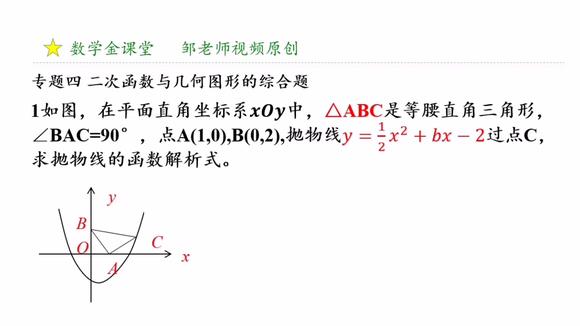 数学金课堂 邹老师视频原创
专题四 二次函数与几何图形的综合题
1如图，在平面直角坐标系xOy中，△ABC是等腰直角三角形，
∠BAC=90°，点A(1,0),B(0,2),抛物线y=\frac{1}{2}x²+bx−2过点C，
求抛物线的函数解析式。
y
B
C
O
A
x